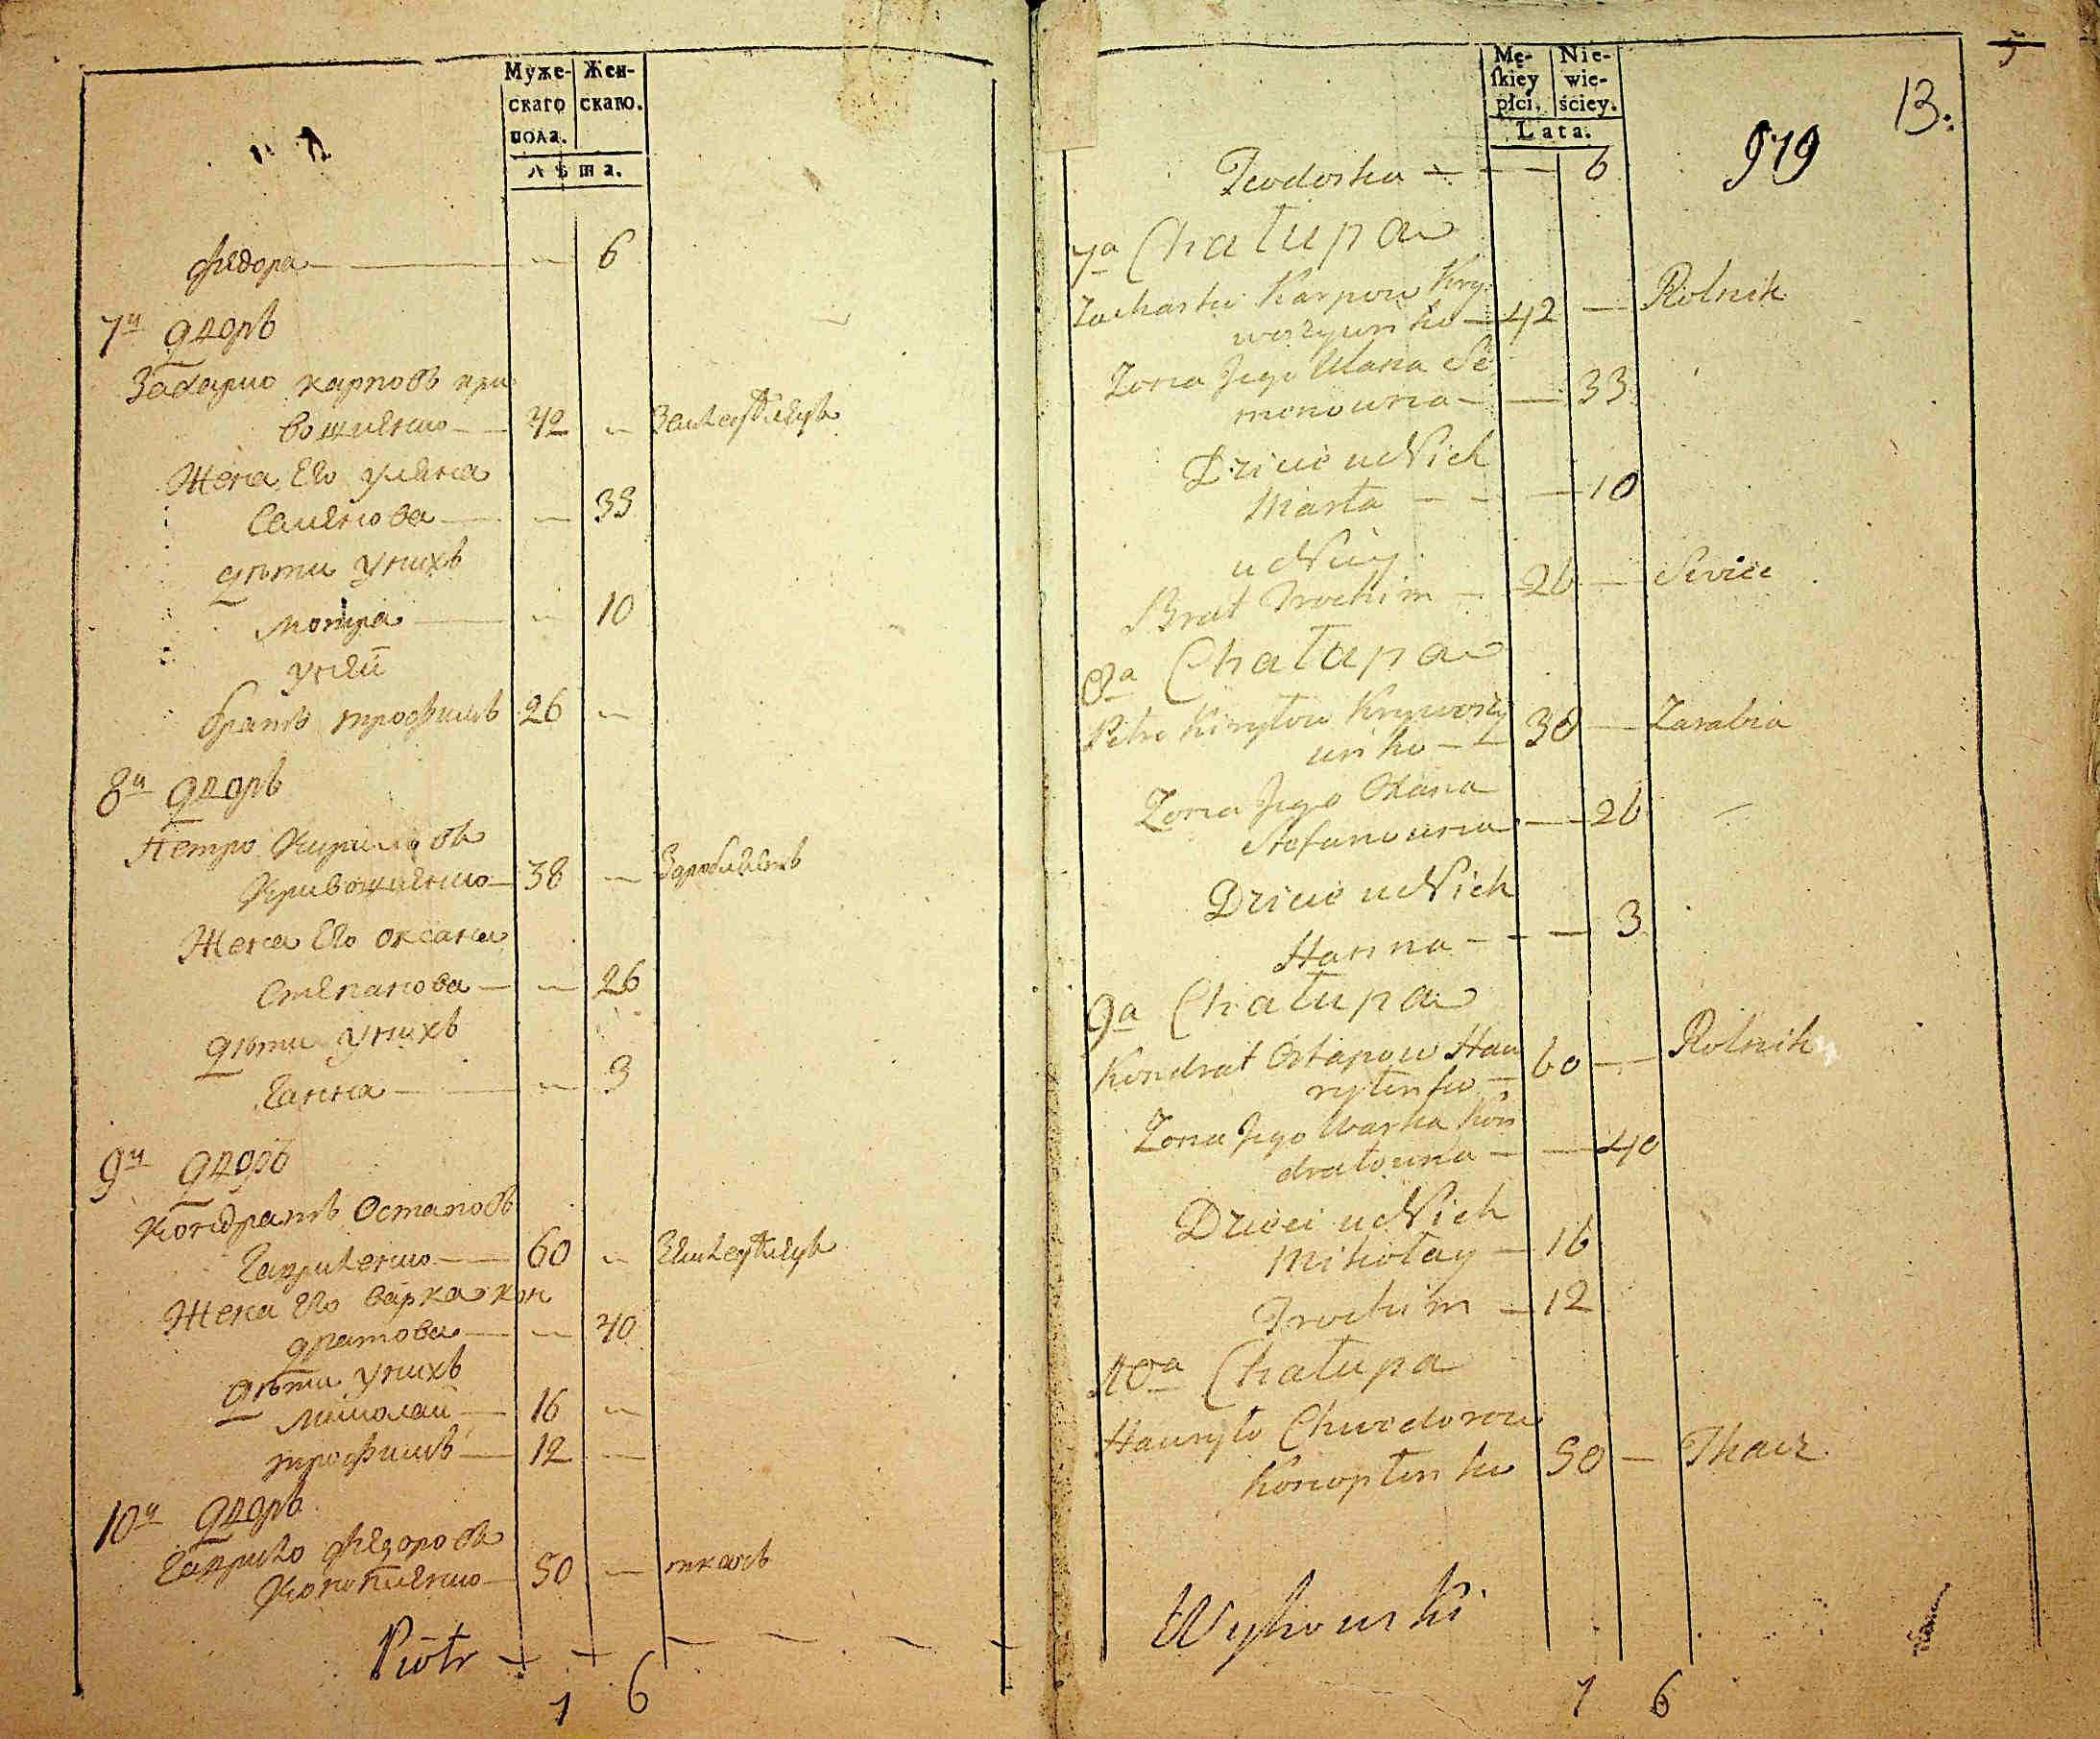 Муже-
скаго
пола.
Жен-
скаго.
Лѣта.
Федора — 6
7й Дворъ
Захарко Карповъ Кри
вошиенко — 42 — Земледелецъ
Жена Его Уляна
Семенова — 33
Дѣти У нихъ
Мотря — 10
У ней
братъ трофимъ 26 —
8й Дворъ
Петро Кириловъ
Кривошиенко — 38 —
Жена Его Оксана
Степанова — — 26
Дѣти У нихъ
Ганна — — 3
9й Дворъ
Кондратъ Остаповъ
Гавриленко — 60 — Земледелецъ
Жена Его Варка Кон
дратова — — 40
Дѣти У нихъ
Миколай — 16 —
трофимъ — 12 —
10й Дворъ
Гаврило Федоровъ
Конопленко — 50 — ткачъ
Piotr
1 6
Mę-
ſkiey
płci.
Nie-
wie-
ściey.
Lata.
13.
979
Teodoska — — 6
7a Chałupa
Zacharko Karpow Kry
woszyienko — 42 — Rolnik
Zona Jego Ulana Se
menowna — — 33
Dzieci u Nich
Marta — — — 10
u Niey
Brat Trochim — 26 —
8a Chałupa
Petro Kiryłow Krywoszy
enko — — 38 — Zarabia
Zona Jego Oxana
Stefanowna — — 26
Dzieci u Nich
Hanna — — — 3
9a Chałupa
Kondrat Ostapow Haw
ryłenko — 60 — Rolnik
Zona Jego Warka Kon
dratowna — — 40
Dzieci u Nich
Mikołay — 16
Trochim — 12
10a Chałupa
Hawryło Chwedorow
Konopłenko 50 — Tkacz
Wyhowski
1 6